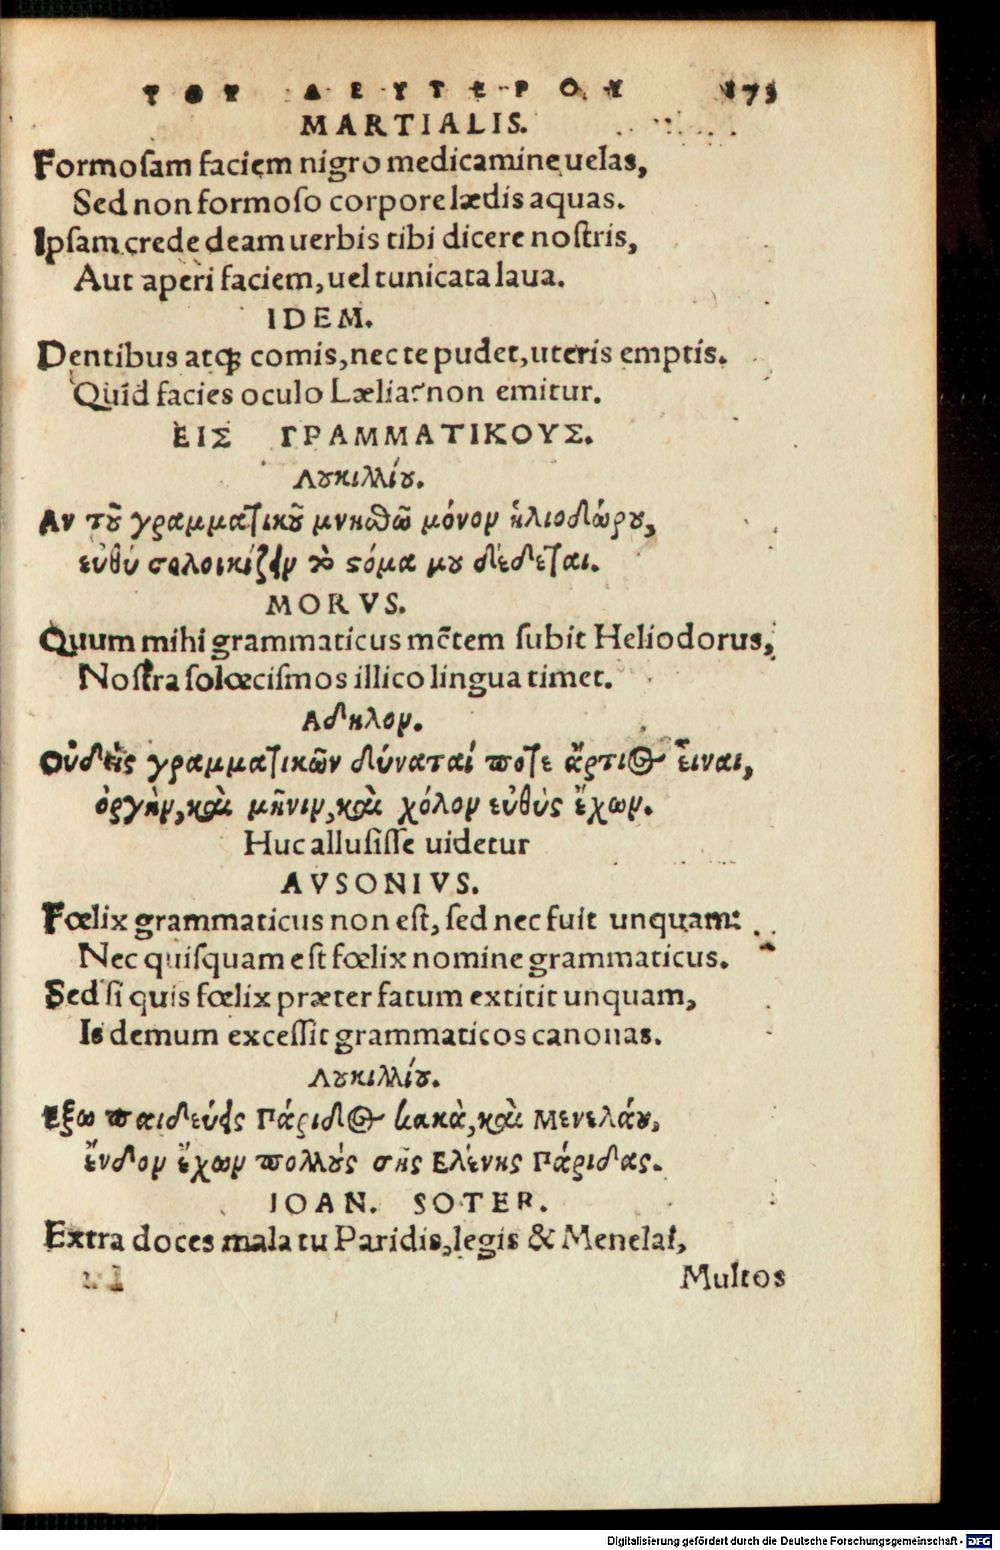 ΤΟΥ ΔΕΥΤΕΡΟΥ 173
MARTIALIS.
Formoſam faciem nigro medicamine uelas,
Sed non formoſo corpore lædis aquas.
Ipſam crede deam uerbis tibi dicere noſtris,
Aut aperi faciem, uel tunicata laua.
IDEM.
Dentibus atq; comis, nec te pudet, uteris emptis.
Quid facies oculo Lælia? non emitur.
ΕΙΣ ΓΡΑΜΜΑΤΙΚΟΥΣ.
Λουκιλλίου.
Αν τοῦ γραμματικοῦ μνησθῶ μόνον ἡλιοδώρου,
εὐθὺ σολοικίζον τὸ στόμα μου δέδεται.
MORVS.
Quum mihi grammaticus mẽtem ſubit Heliodorus,
Noſtra ſolœciſmos illico lingua timet.
Αδηλον.
Οὐδεὶς γραμματικῶν δύναταί ποτε ἄρτιος εἶναι,
ὀργὴν, καὶ μῆνιν, καὶ χόλον εὐθὺς ἔχων.
Huc alluſiſſe uidetur
AVSONIVS.
Fœlix grammaticus non eſt, ſed nec fuit unquam:
Nec quiſquam eſt fœlix nomine grammaticus.
Sed ſi quis fœlix præter fatum extitit unquam,
Is demum exceſſit grammaticos canonas.
Λουκιλλίου.
Εξω παιδεύεις Πάριδος κακὰ, καὶ Μενελάου,
ἔνδον ἔχων πολλοὺς σῆς Ελένης Πάριδας.
IOAN. SOTER.
Extra doces mala tu Paridis, legis & Menelai,
Multos
Digitalisierung gefördert durch die Deutsche Forschungsgemeinschaft - DFG